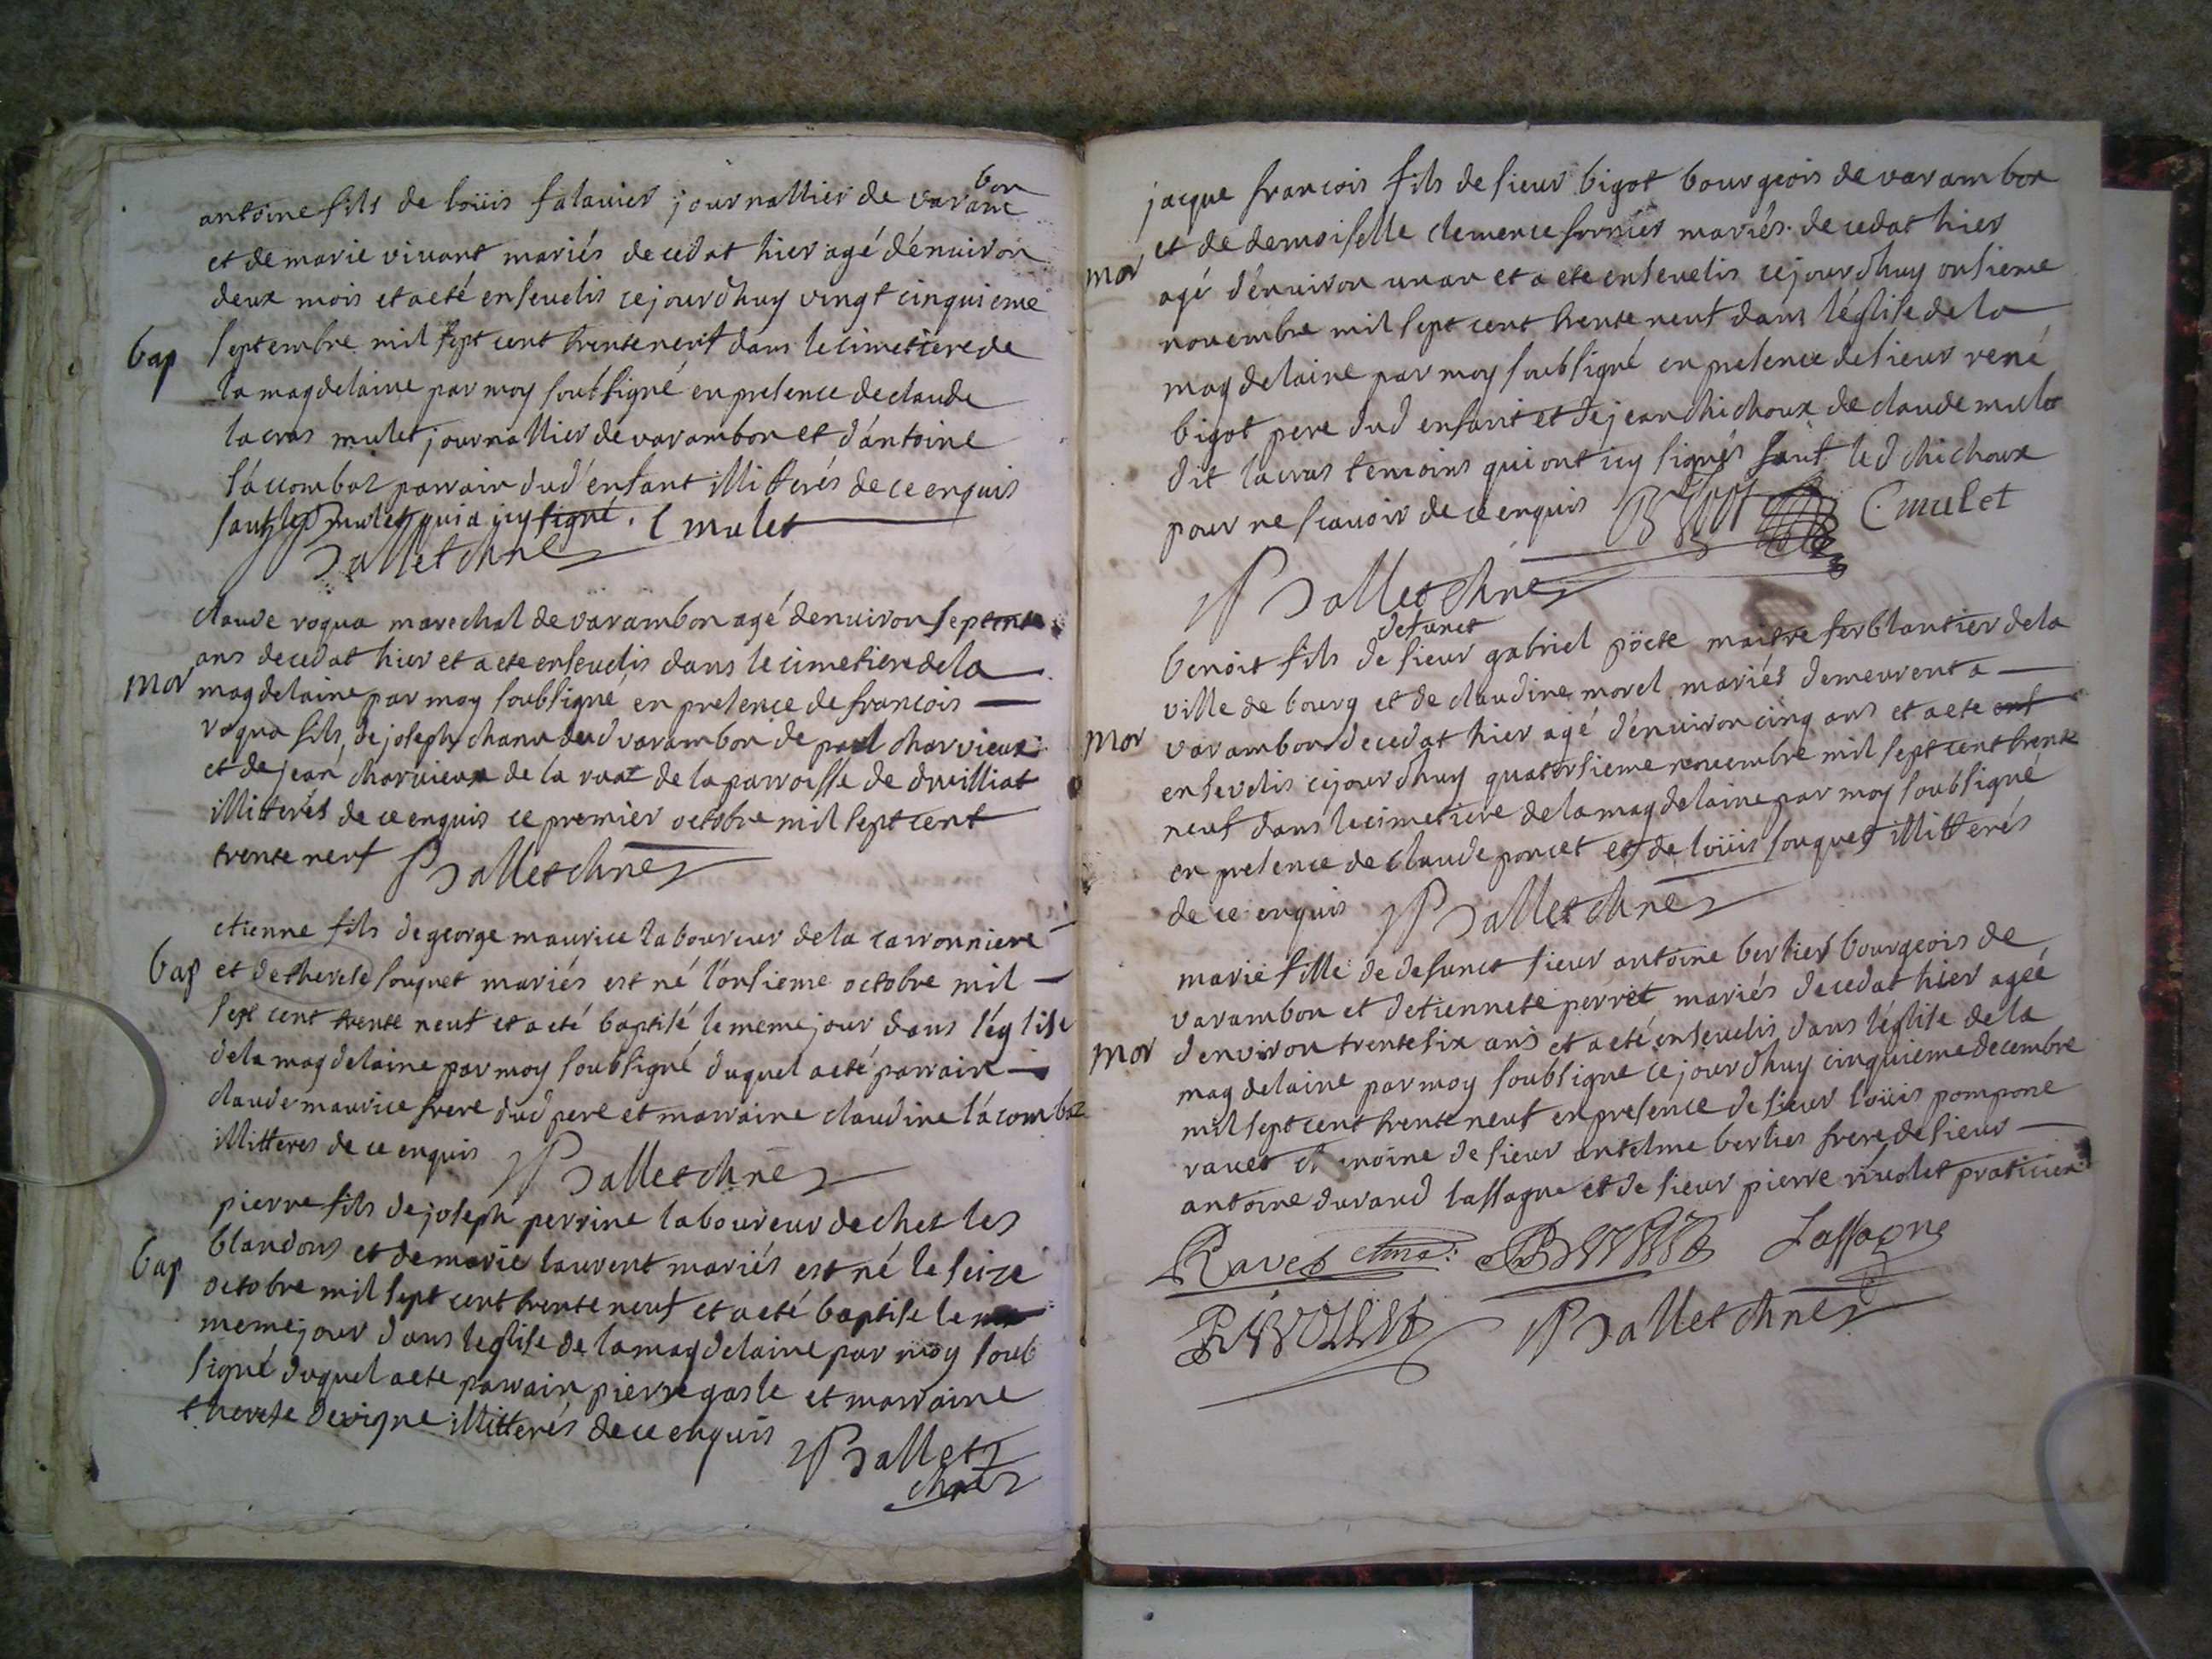 antoine fils de loüis falavier journallier de varambon
et de marie vivant mariés decedat hier agé dénuiron
deux mois et a eté enseuelis cejourdhuy vingt cinquieme
bap septembre mil sept cent trente neuf dans le cimetiere de
la magdelaine par moy soubsigné en presence de claude
lacras mulet journallier de varambon et d'antoine
lácombaz parrain dud enfant illitterés de ce enquis
sauf led mulet qui a icy signé. C mulet
Ballet chne
claude roqua marechal de varambon agé denuiron septente
ans decedat hier et a ete enseuelis dans le cimetiere de la
mor magdelaine par moy soubsigné en presence de francois
roqua fils, de joseph chanu dud varambon de paul charvieux
et de jean charvieux de la ruaz de la parroisse de druilliat
illitterés de ce enquis ce premier octobre mil sept cent
trente neuf Ballet chne
etienne fils de george maurice laboureur de la carronniere
bap et de therese souquet mariés est né l'onsieme octobre mil
sept cent trente neuf et a eté baptisé le meme jour dans l'églis
de la magdelaine par moy soubsigné duquel a eté parrain
claude maurice frere dud pere et marraine claudine lácombaz
illitteres de ce enquis Ballet chne
pierre fils de joseph perrine laboureur de chet les
blandons et de marie laurent mariés est né le seize
bap octobre mil sept cent trente neuf et a eté baptise le
meme jour dans leglise de la magdelaine par moy soub
signé duquel a ete parrain pierre gasle et marraine
therese devigne illitterés de ce enquis Ballet
chne
jacque francois fils de sieur bigot bourgeois de varambon
et de demoiselle clemence fornier mariés decedat hier
mor agé dénuiron un an et a ete enseuelis cejourdhuy onsieme
novembre mil sept cent trente neuf dans léglise de la
magdelaine par moy soubsigné en presence de sieur rené
bigot pere dud enfant et de jean chichoux de claude mulet
dit lacras temoins qui ont icy signés sauf led chichoux
pour ne scavoir de ce enquis Bigot C. mulet
Ballet chne
defunct
benoit fils de sieur gabriel pöete maitre ferblantier de la
ville de bourg et de claudine morel mariés demeurent a
mor varambon decedat hier agé dénuiron cinq ans et a ete
enseuelis cejourdhuy quatorsieme novembre mil sept cent trente
neuf dans le cimetiere de la magdelaine par moy soubsigné
en presence de claude poncet et de loüis souquet illitterés
de ce enquis Ballet chne
marie fille de defunct sieur antoine bertier bourgeois de
varambon et detiennete perret mariés decedat hier ageé
mor denviron trente six ans et a eté enseuelis dans léglise de la
magdelaine par moy soubsigne cejourdhuy cinquieme decembre
mil sept cent trente neuf en presence de sieur loüis pompone
ravet chanoine de sieur antelme bertier frere de sieur
antoine durand lassagne et de sieur pierre rivolet praticien
Ravet chne: Lassagne
Rivollet Ballet chne